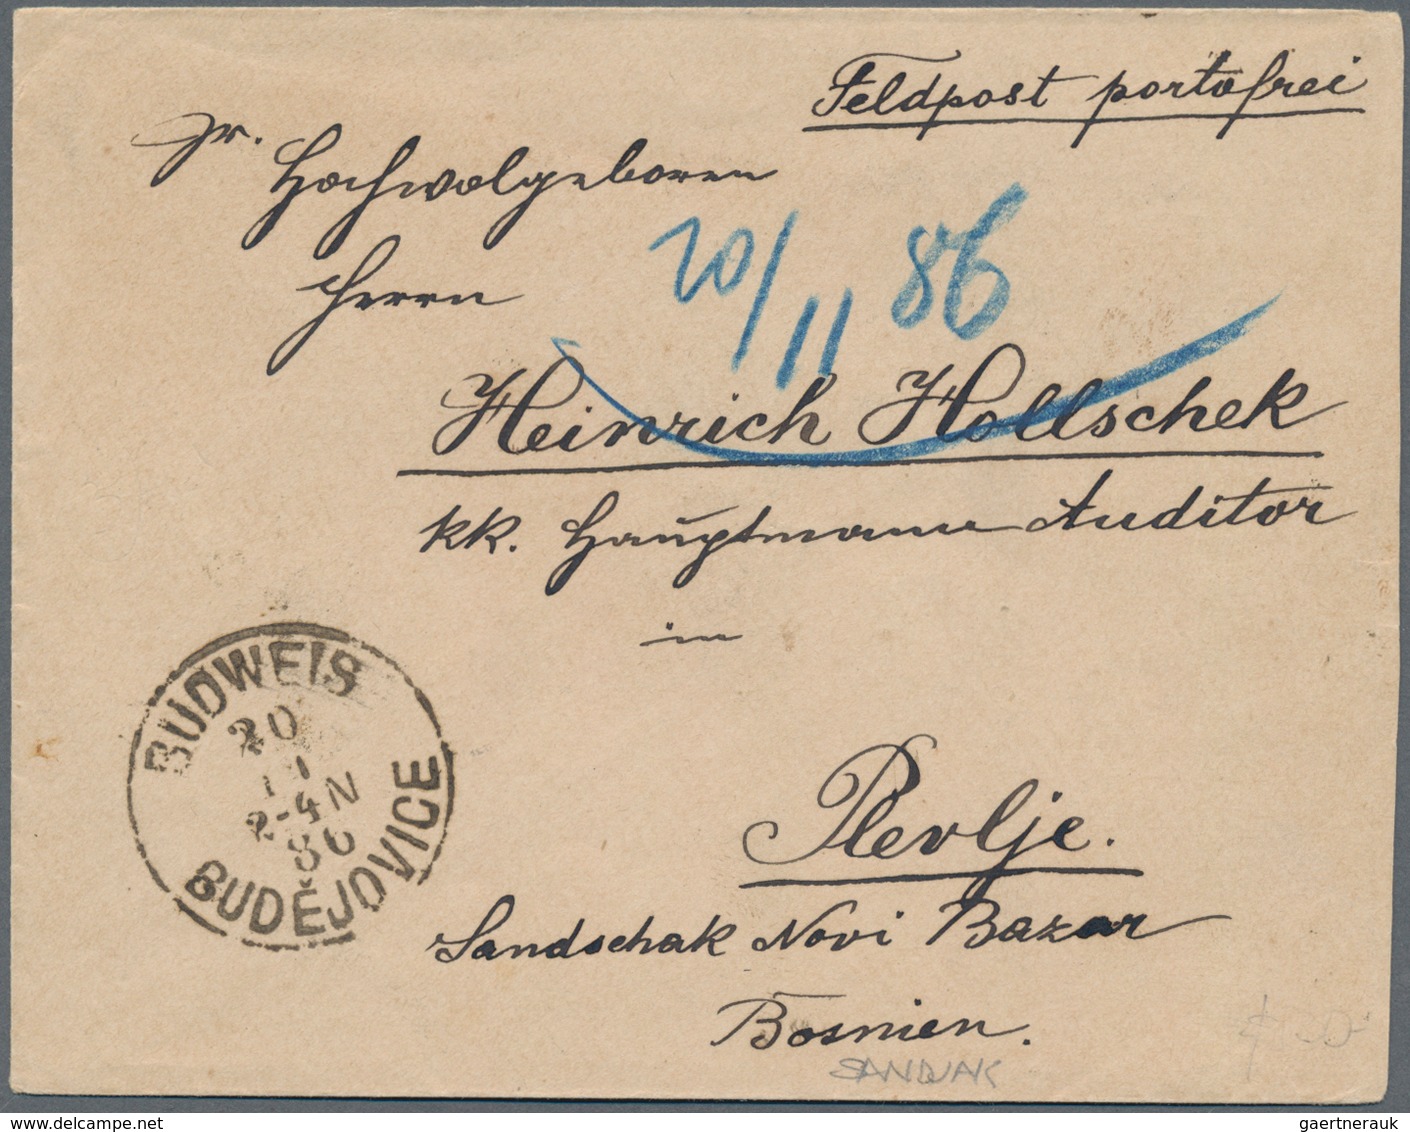 Feldpost portofrei
Sr.
Hochwolgeboren
Herrn
20/11 86
Heinrich Hollschek
kk. Hauptmann Auditor
in
BUDWEIS
20
11
2-4N
86
BUDĚJOVICE
Plevlje.
Sandschak Novi Bazar
Bosnien.
SANDJAK
gaertnerauk
www.delcampe.net